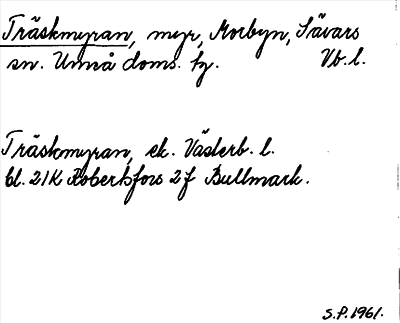 Träskmyran, myr, Morbyn, Sävars
sn. Umeå doms. hg. Vb. l.
Träskmyran, ek. Västerb. l.
bl. 21K Robertsfors 2f Bullmark.
S.P. 1961.